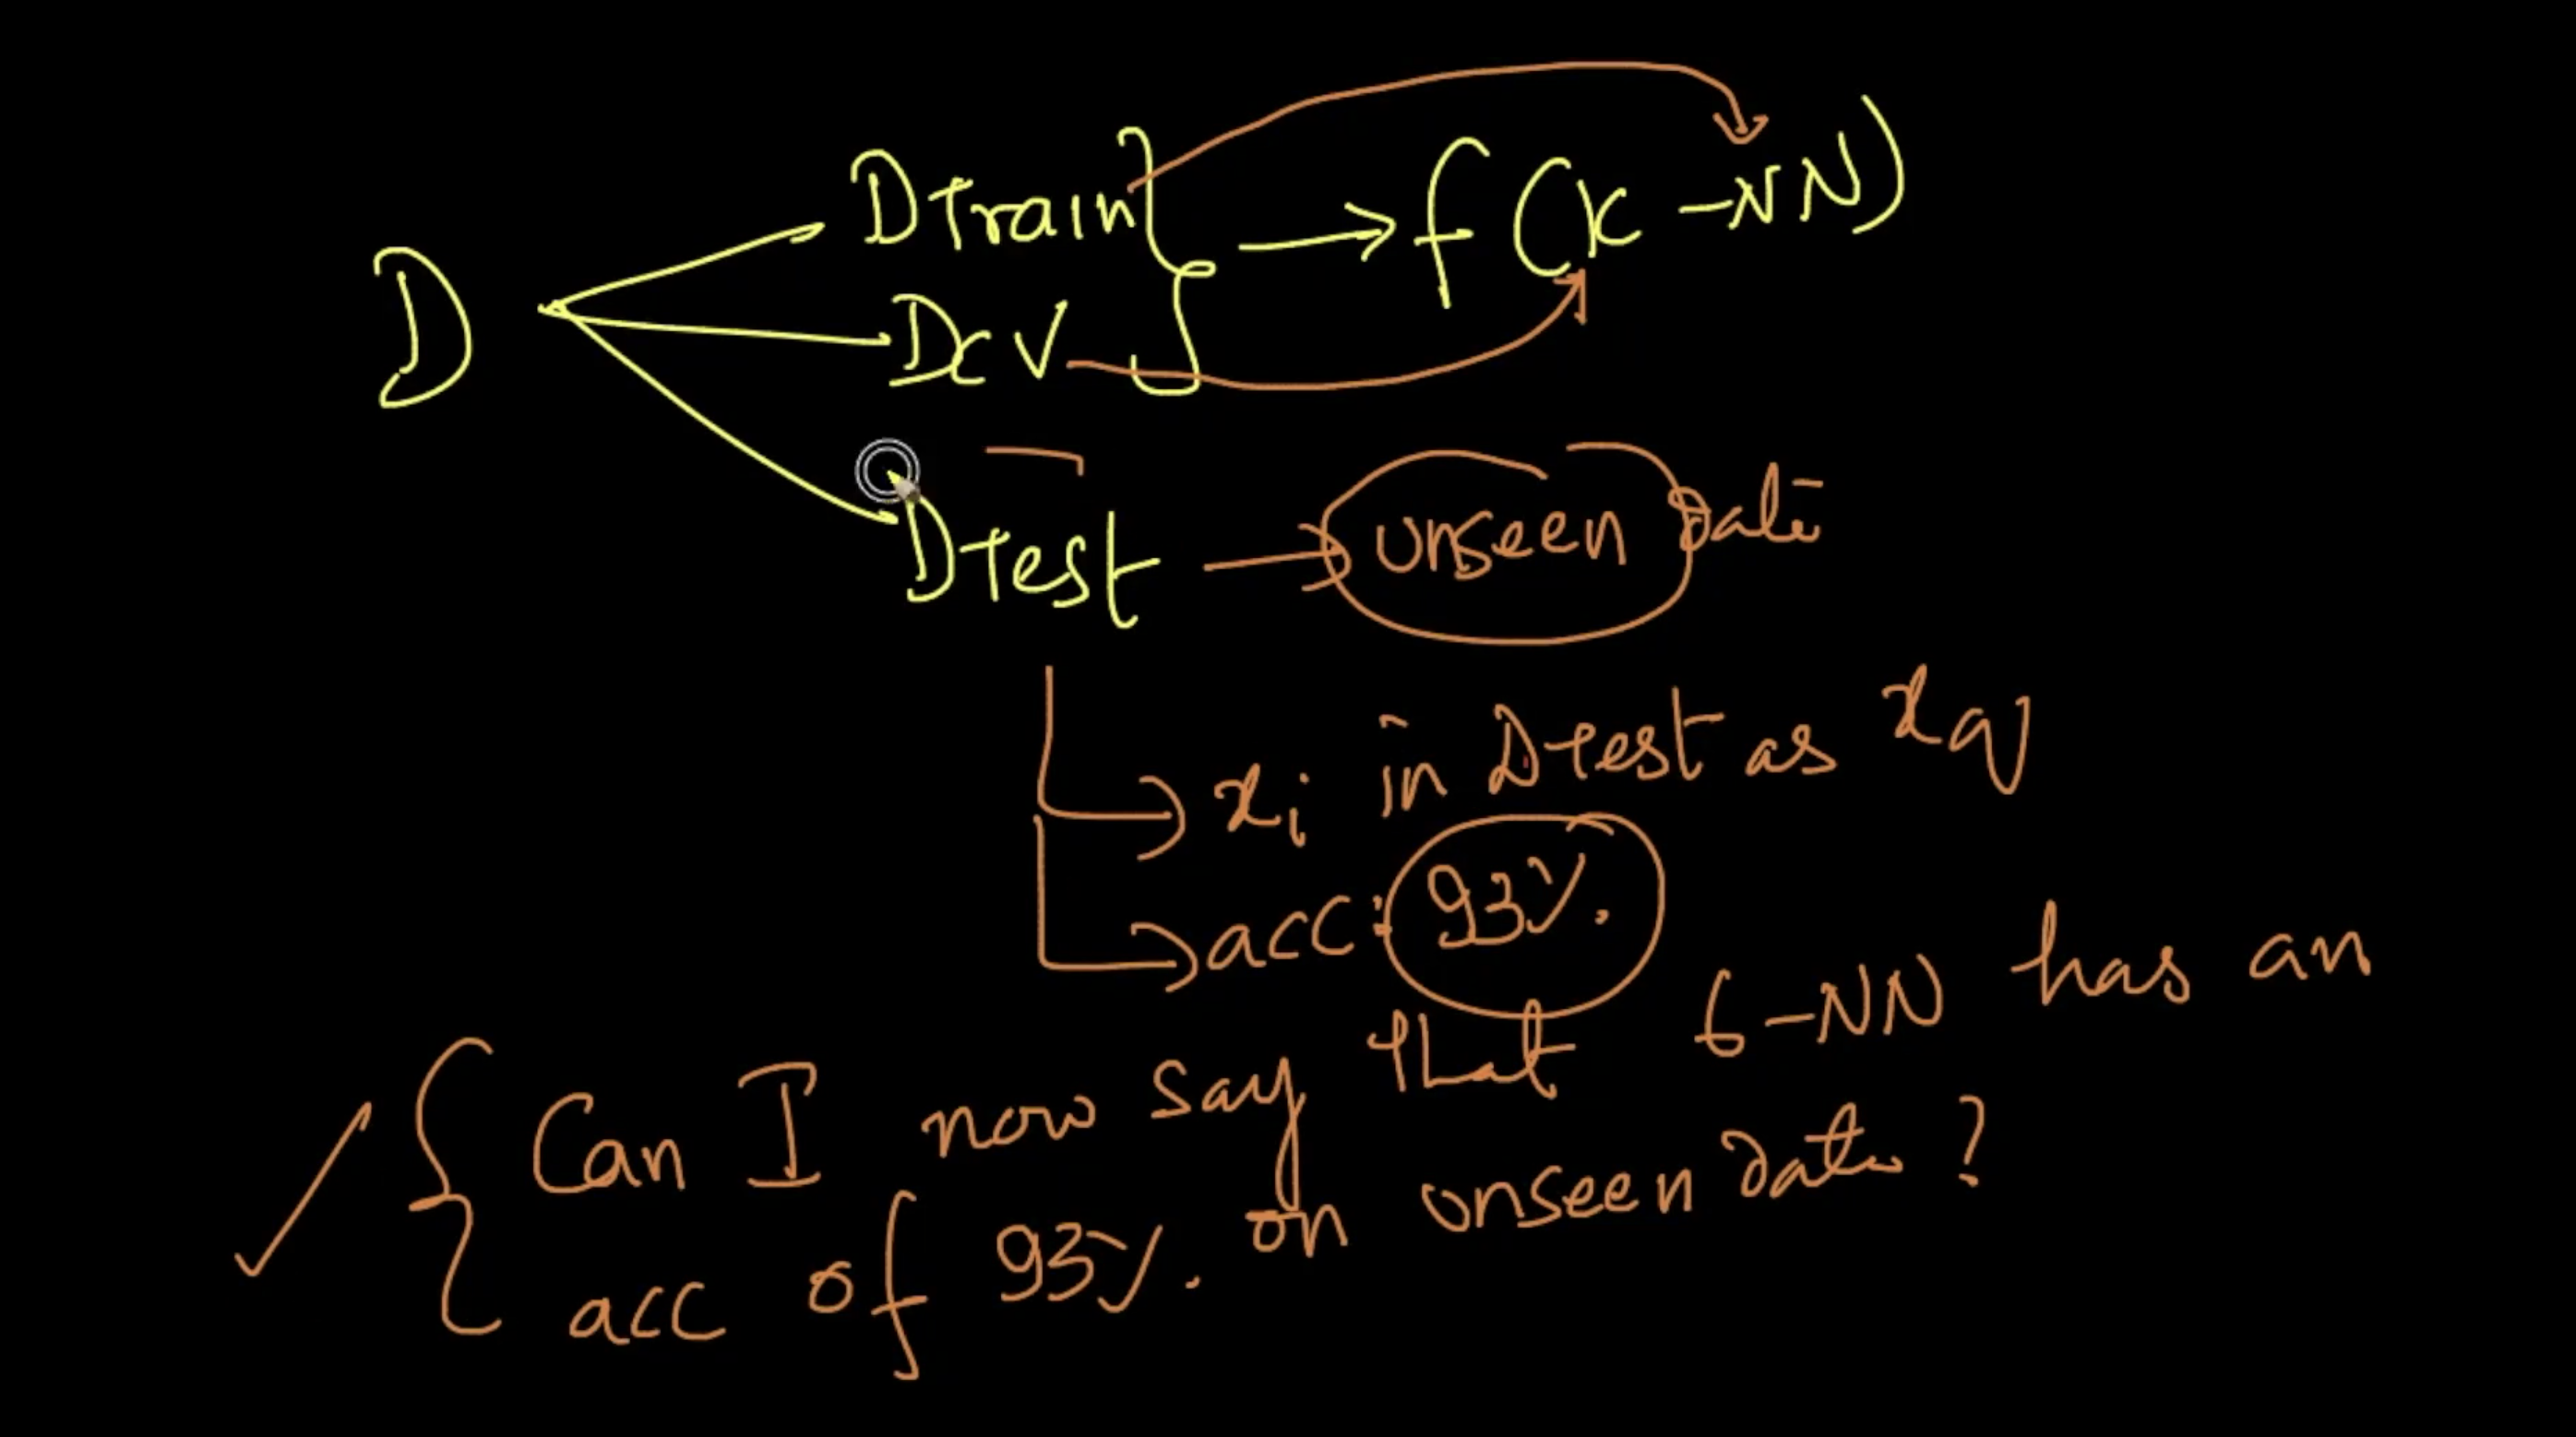 D
Dtrain
f(K-NN)
Dcv
Dtest
unseen Data
xi in Dtest as xq
acc: 93%.
Can I now say that 6-NN has an
acc of 93%. on unseen data?